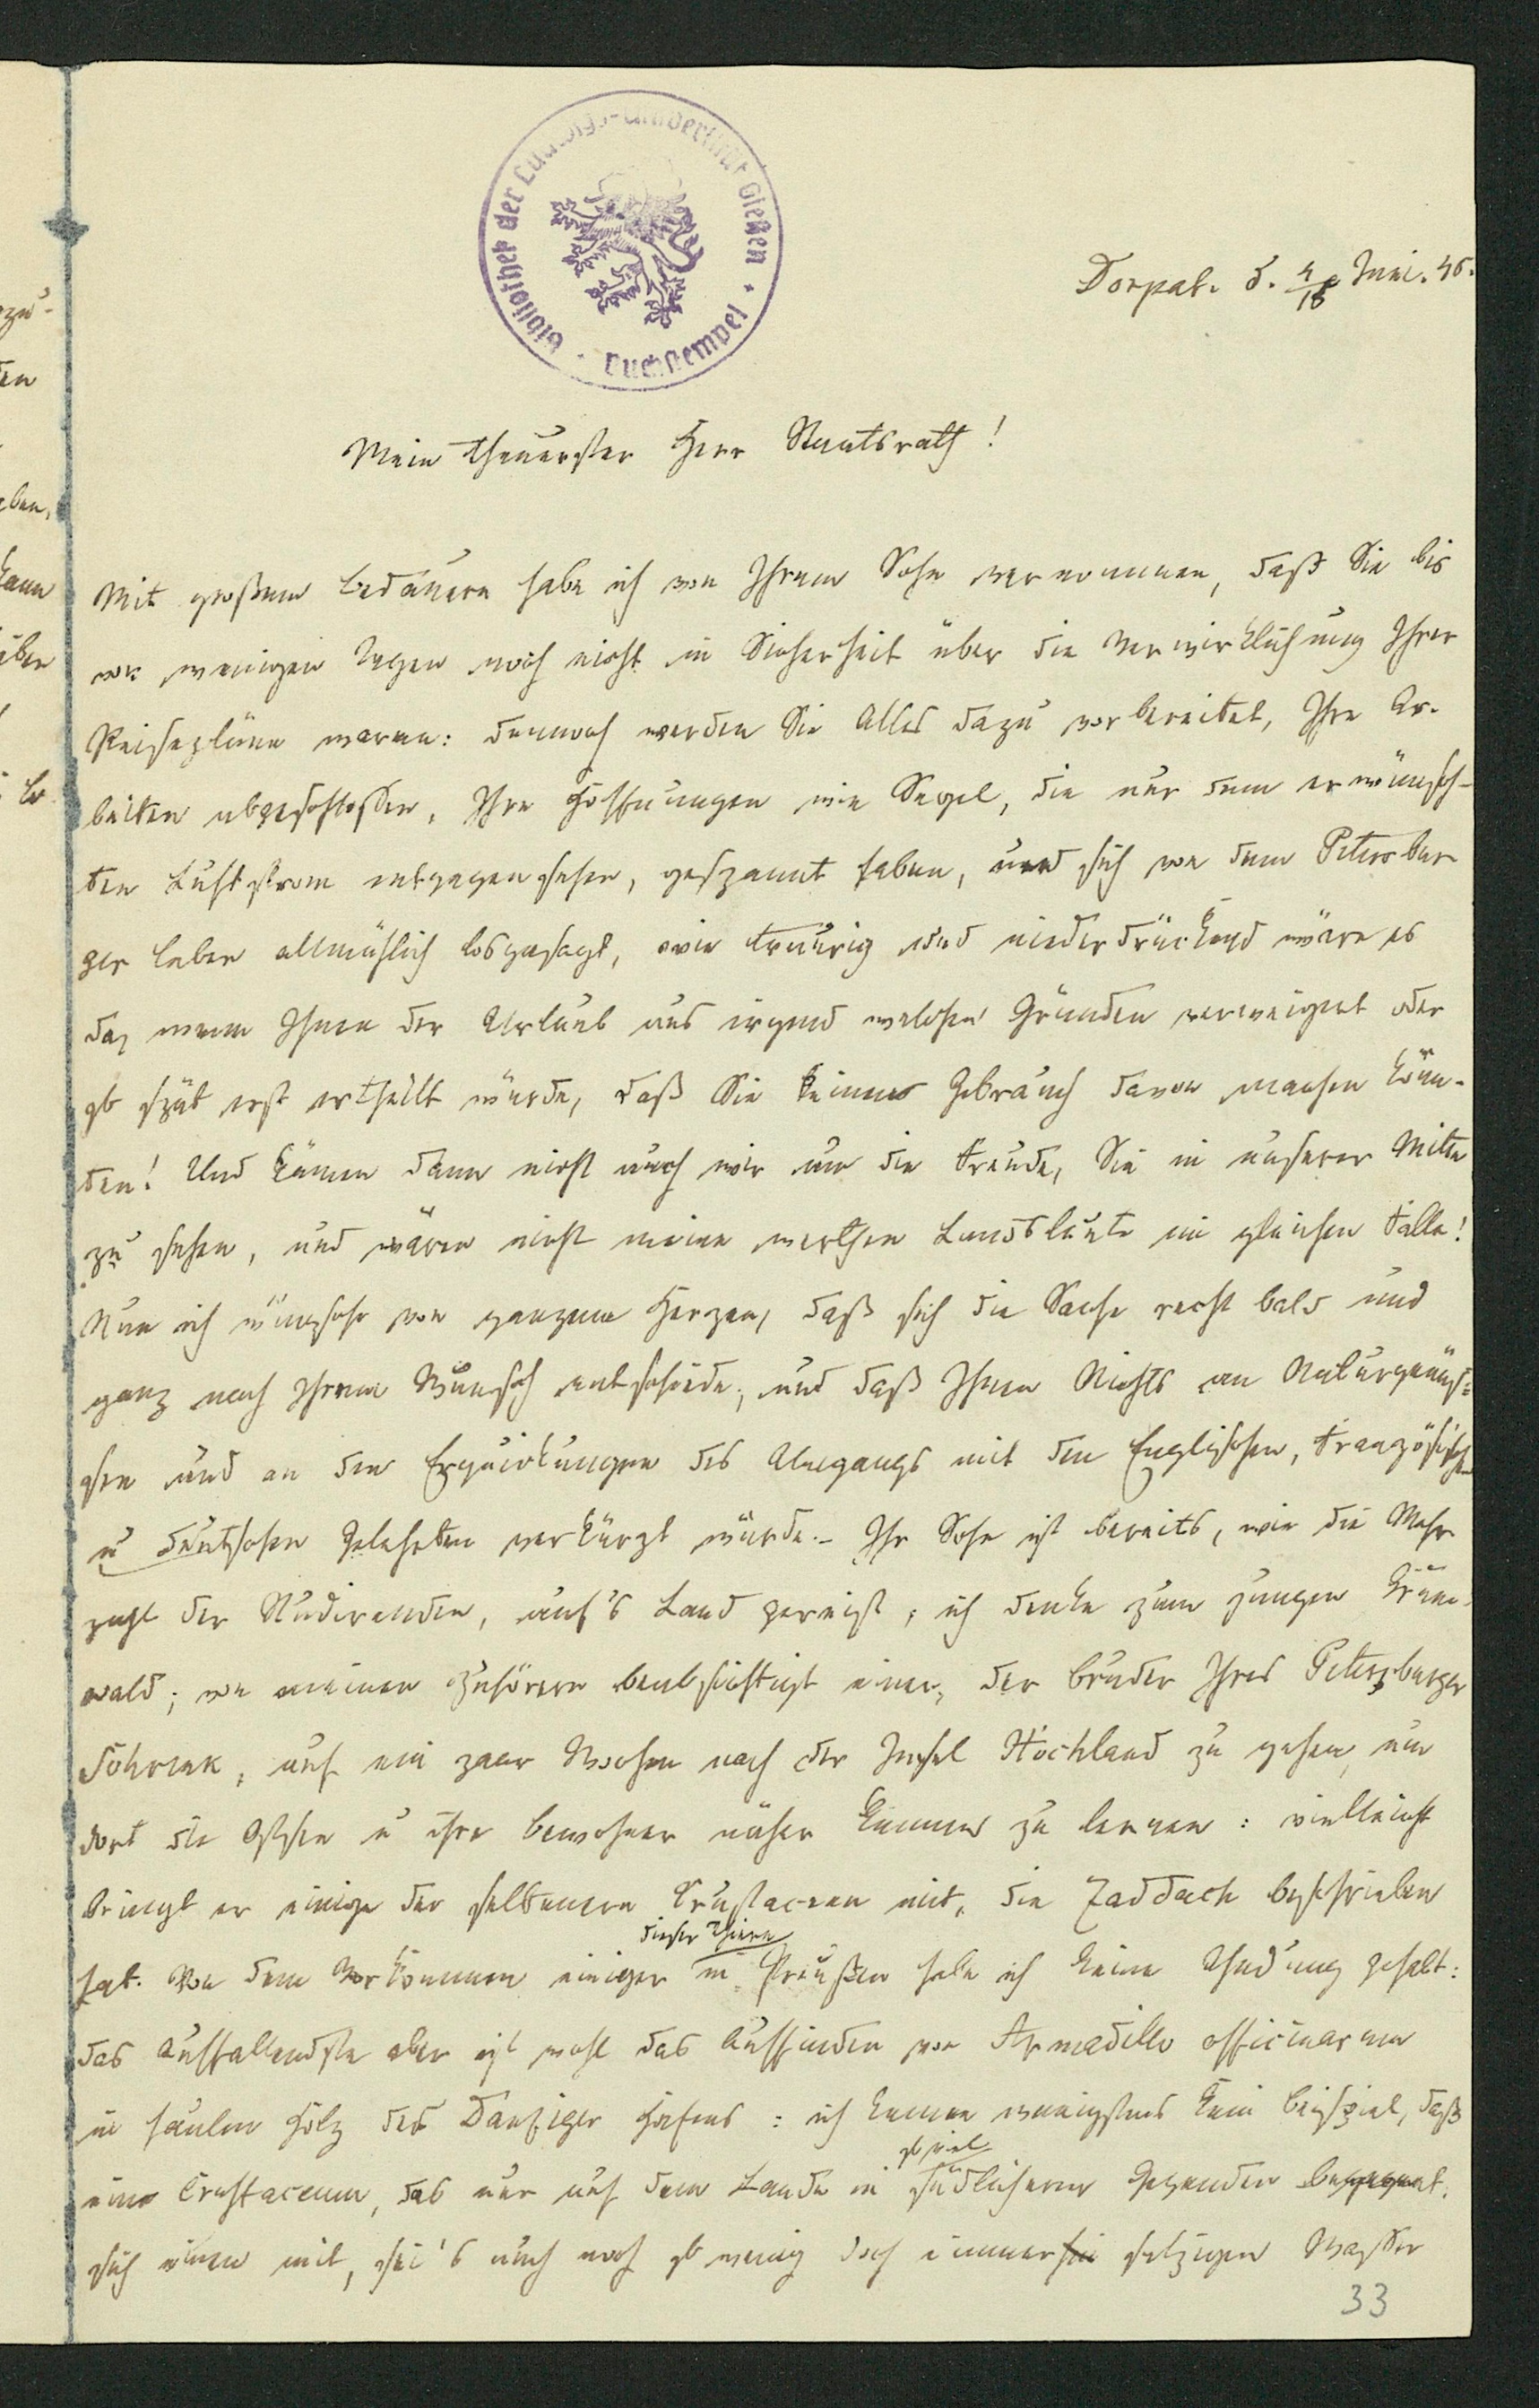 Bibliothek der Ludwigs-Universität Gießen · Buchstempel ·
Dorpat. d. 4/16 Juni. 46.
Mein theuerster Herr Staatsrath!
Mit großem Bedauern habe ich von Ihrem Sohn vernommen, daß Sie bis
vor wenigen Tagen noch nicht in Sicherheit über die Verwirklichung Ihrer
Reisepläne waren: dennoch werden Sie Alles dazu vorbereitet, Ihre Ar-
beiten abgeschlossen, Ihre Hoffnungen wie Segel, die nur dem erwünsch-
ten Luftstrom entgegensehen, gespannt haben, und sich von dem Petersbur-
ger Leben allmählich losgesagt, wie traurig und niederdrückend wäre es
da, wenn Ihnen der Urlaub aus irgend welchen Gründen verweigert oder
so spät erst ertheilt würde, daß Sie keinen Gebrauch davon machen könn-
ten! Und kämen dann nicht auch wir um die Freude, Sie in unserer Mitte
zu sehen, und wären nicht meine werthen Landsleute im gleichen Falle!
Nun ich wünsche von ganzem Herzen, daß sich die Sache recht bald und
ganz nach Ihrem Wunsch entscheide, und daß Ihnen Nichts an Naturgenüs-
sen und an den Erquickungen des Umgangs mit den Englischen, Französischen
u deutschen Gelehrten verkürzt würde. - Ihr Sohn ist bereits, wie die Mehr-
zahl der Studirenden, auf's Land gereist, ich denke zum jungen Grüne-
wald; von meinen Zuhörern beabsichtigt einer, der Bruder Ihres Petersburger
Schrenk, auf ein paar Wochen nach der Insel Hochland zu gehen, um
dort die Ostsee u ihre Bewohner näher kennen zu lernen: vielleicht
bringt er einige der seltenern Crustaceen mit, die Zaddach beschrieben
hat. Von dem Vorkommen einiger dieser Thiere in Preußen habe ich keine Ahndung gehabt:
das Auffallendste aber ist wohl das Auffinden von Armadillo officinarum
in faulem Holz des Danziger Hafens: ich kenne wenigstens kein Beispiel, daß
eine Crustaceum, das nur auf dem Lande in so viel südlicheren Gegenden begegnet,
sich einem mit, sei's auch noch so wenig doch immerhin salzigen Wasser
33